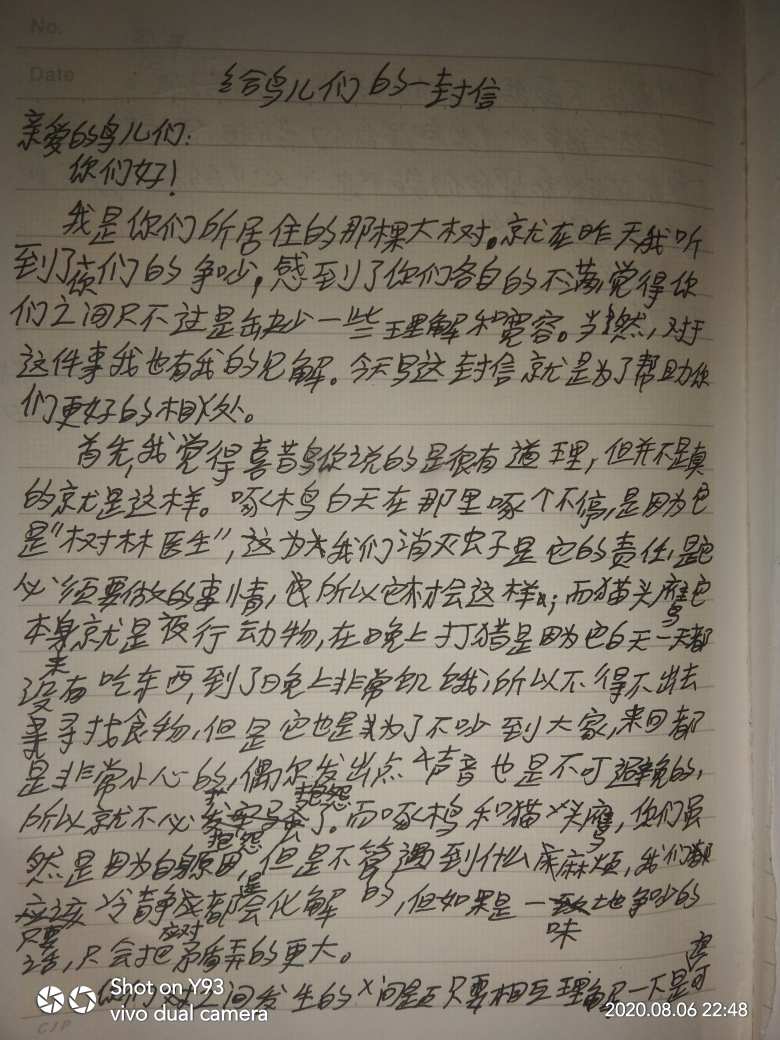 No.
Date
给鸟儿们的一封信
亲爱的鸟儿们:
你们好!
我是你们所居住的那棵大树。就在昨天我听
到了你们的争吵,感到了你们各自的不满,觉得你
们之间只不过是缺少一些理解和宽容。当然,对于
这件事我也有我的见解。今天写这封信就是为了帮助你
们更好的相处。
首先,我觉得喜昔鸟你说的是很有道理,但并不是真
的就是这样。啄木鸟白天在那里啄个不停,是因为它
是"树林医生",这为我们消灭虫子是它的责任,是它
必须要做的事情,所以它才会这样;而猫头鹰它
本身就是夜行动物,在晚上打猎是因为它白天一天都
没有吃东西,到了晚上非常饥饿,所以不得不出去
寻找食物,但是它也是为了不吵到大家,来回都
是非常小心的,偶尔发出点声音也是不可避免的,
所以就不必抱怨了。而啄木鸟和猫头鹰,你们虽
然是因为自身原因,但是不管遇到什么麻烦,我们都
应该冷静应对都是会化解的,但如果是一味地争吵的
话,只会把矛盾弄的更大。
你们之间发生的问题只要相互理解一下是可
Shot on Y93
vivo dual camera
2020.08.06 22:48
CJP